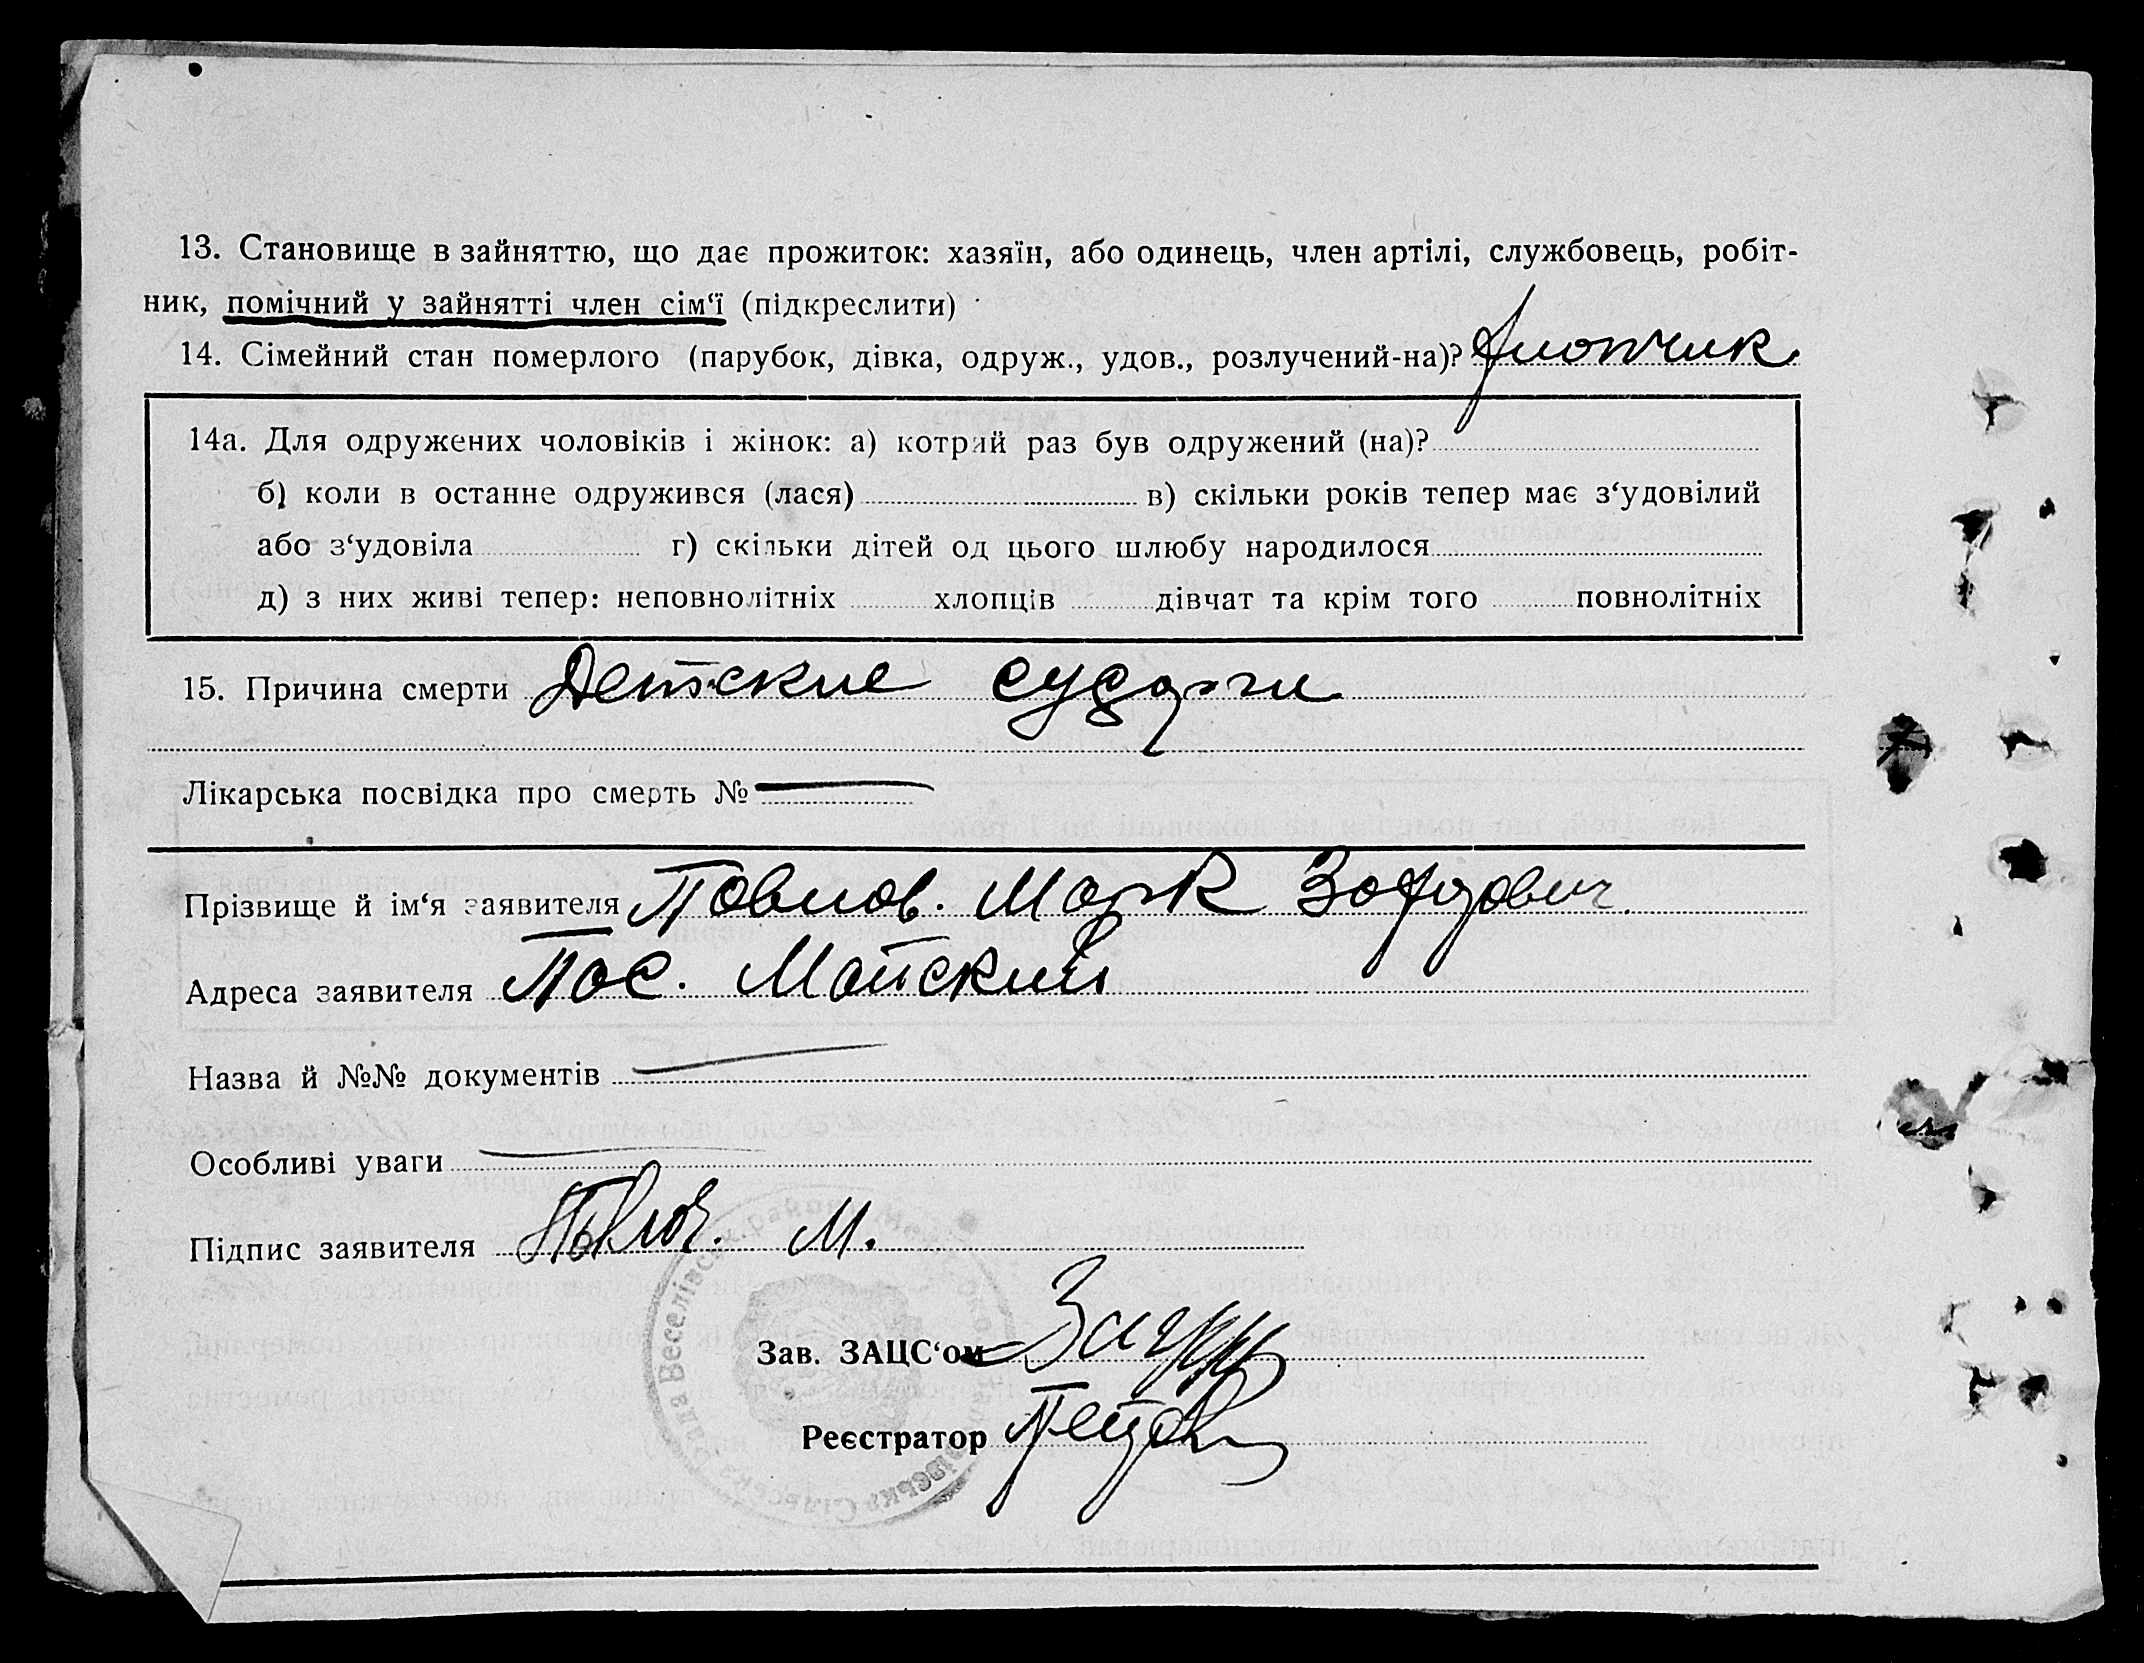 13. Становище в зайняттю, що дає прожиток: хазяїн, або одинець, член артілі, службовець, робіт-
ник, помічний у зайнятті член сім‘ї (підкреслити)
14. Сімейний стан померлого (парубок, дівка, одруж., удов., розлучений-на)? Хлопчик
14а. Для одружених чоловіків і жінок: а) котрий раз був одружений (на)?
б) коли в останнє одружився (лася) в) скільки років тепер має з‘удовілий
або з‘удовіла г) скільки дітей од цього шлюбу народилося
д) з них живі тепер: неповнолітніх хлопців дівчат та крім того повнолітніх
15. Причина смерти Детские судорги
Лікарська посвідка про смерть №
Прізвище й ім‘я заявителя Павлов. Марк
Адреса заявителя Пос. Майский
Назва й №№ документів
Особливі уваги
Підпис заявителя М.
Зав. ЗАЦС‘ом
Реєстратор